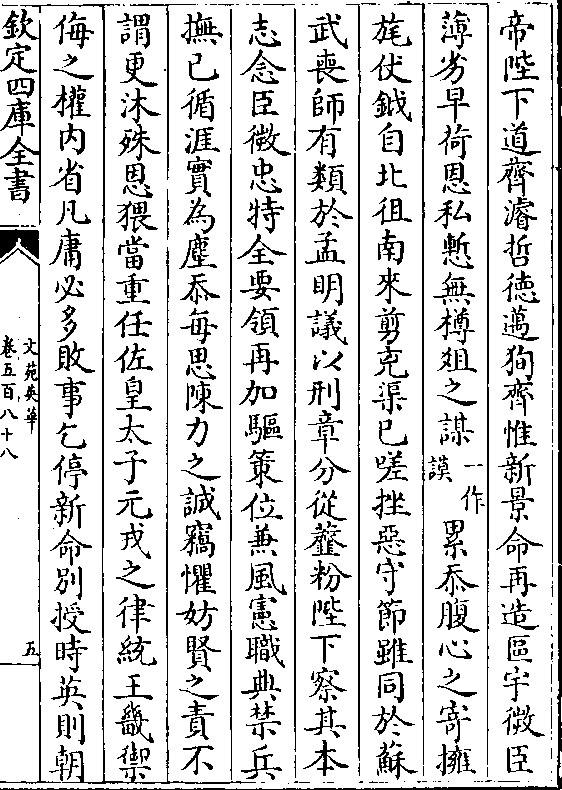 帝陛下道齊濬哲徳邁狥齊惟新景命再造區宇微臣
薄劣早荷恩私慙無樽爼之謀一作謨累忝腹心之寄擁
旄仗鉞自北徂南來剪克渠已嗟挫惡守節雖同於蘇
武喪師有類於孟明議以刑章分從虀粉陛下察其本
志念臣微忠特全要領再加驅策位兼風憲職典禁兵
撫已循涯實為塵忝每思陳力之誠竊懼妨賢之責不
謂更沐殊恩猥當重任佐皇太子元戎之律統王畿禦
侮之權内省凡庸必多敗事乞停新命别授時英則朝
欽定四庫全書
文苑英華
卷五百八十八
五